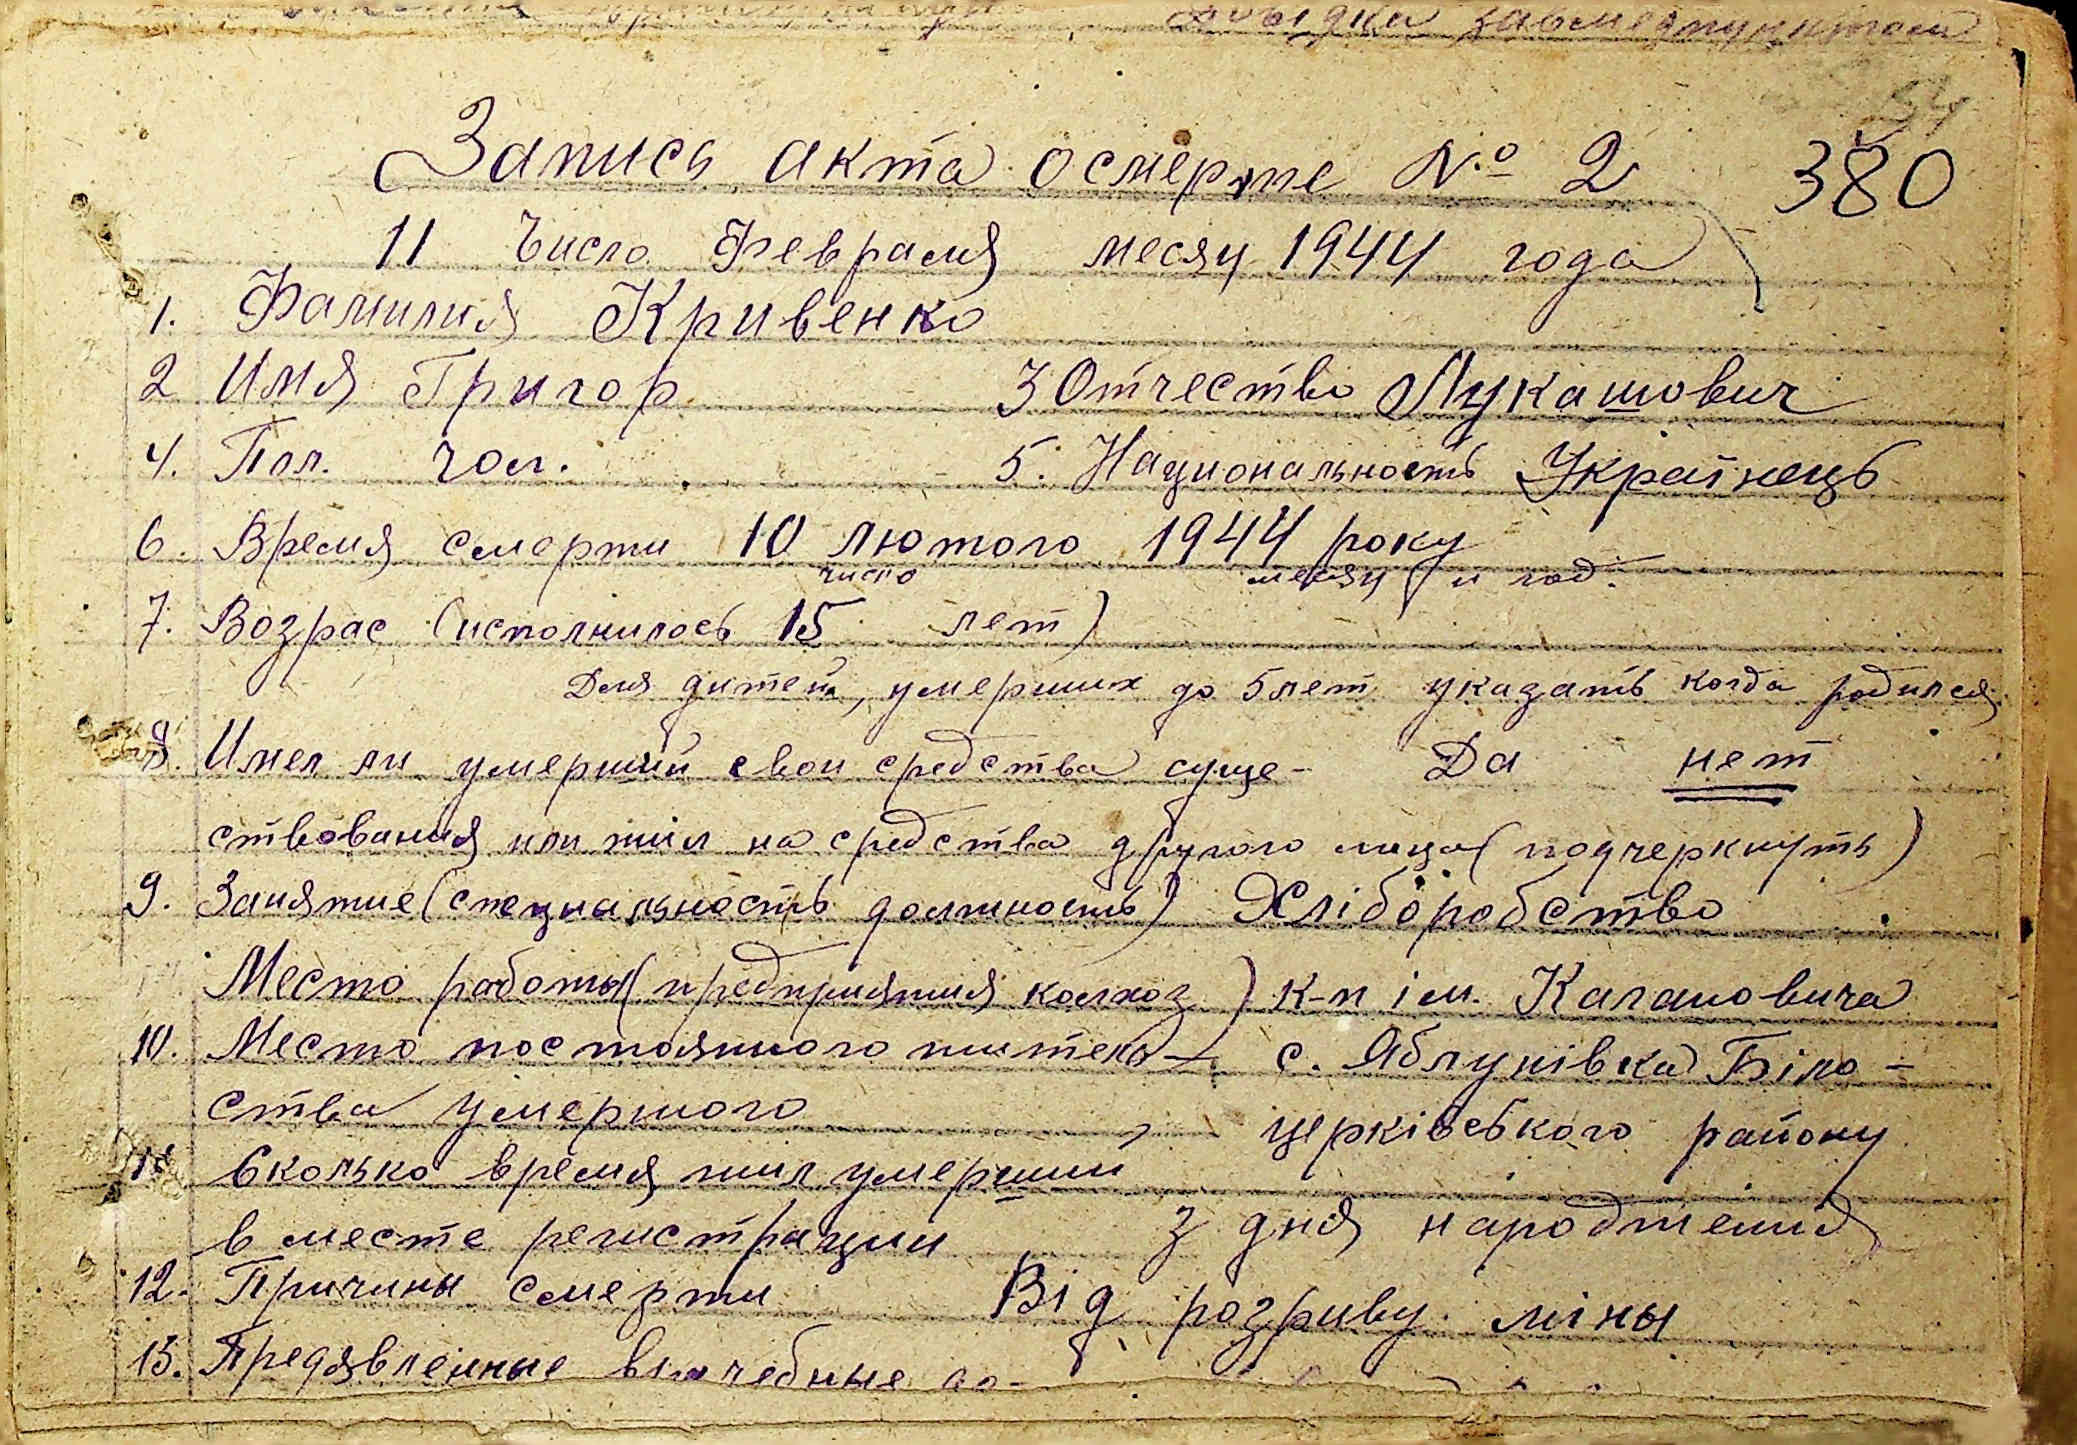 Довідка завмедпунктом
54
Запись акта о смерте №o 2 380
11 Число Февраля месяц 1944 года
1. Фамилия Кривенко
2 Имя Григор 3 Отчество Лукашович
4. Пол. чол. 5. Национальность Українець
6. Время смерти 10 лютого 1944 року
число месяц и год.
7. Возрас (исполнилось 15 лет)
Для дитей, умерших до 5 лет указать когда родился
8. Имел ли умерший свои средства суще- Да нет
ствования или жил на средства другого лица (подчеркнуть)
9. Занятие (специальность должность) Хліборобство
Место работы (предприятия колхоз) к-п ім. Кагановича
10. Место постоянного житель- с. Яблунівка Біло-
ства умершого церківського району
11 Сколько время жил умерший
в месте регистрации з дня народження
12. Причины смерти Від розриву міны
13. Предявленные врачебные до-